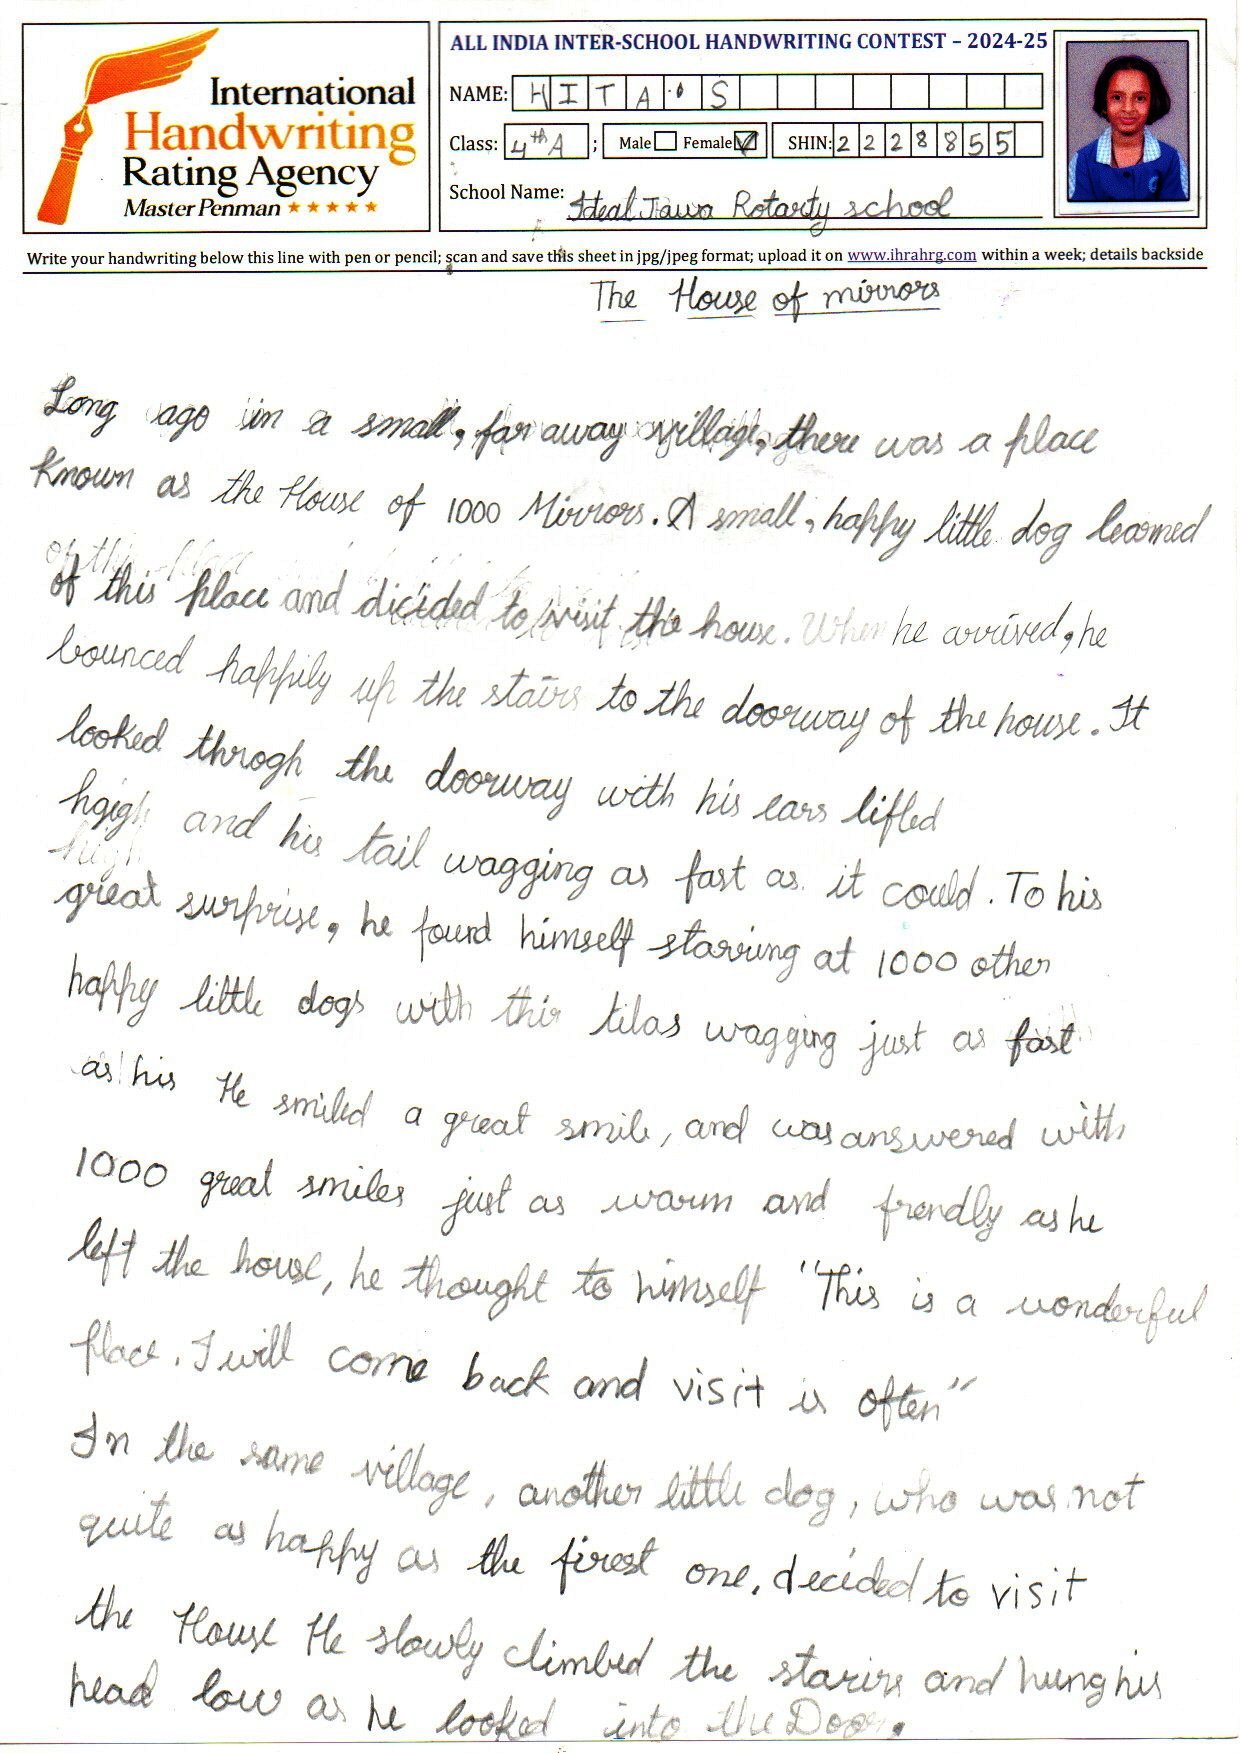 International
Handwriting
Rating Agency
Master Penman
ALL INDIA INTER-SCHOOL HANDWRITING CONTEST – 2024-25
NAME: HITA.S
Class: 4th A ; Male Female SHIN: 2228855
School Name: Ideal Jawa Rotarty school
Write your handwriting below this line with pen or pencil; scan and save this sheet in jpg/jpeg format; upload it on www.ihrahrg.com within a week; details backside
The House of mirrors
Long ago in a small, far away village, there was a place
Known as the House of 1000 Mirrors. A small, happy little dog learned
of this place and dicided to visit the house. When he arrived, he
bounced happily up the stairs to the doorway of the house. It
looked throgh the doorway with his ears lifled
hgigh and his tail wagging as fast as it could. To his
great surprise, he found himself starring at 1000 other
happy little dogs with thir tilas wagging just as fast
as his He smiled a great smile, and was answered with
1000 great smiles just as warm and frendly as he
left the house, he thought to himself "This is a wonderful
place. I will come back and visit is often"
In the same village, another little dog, who was not
quite as happy as the firest one, decided to visit
the House He slowly climbed the starirs and hung his
head low as he looked into the Door.